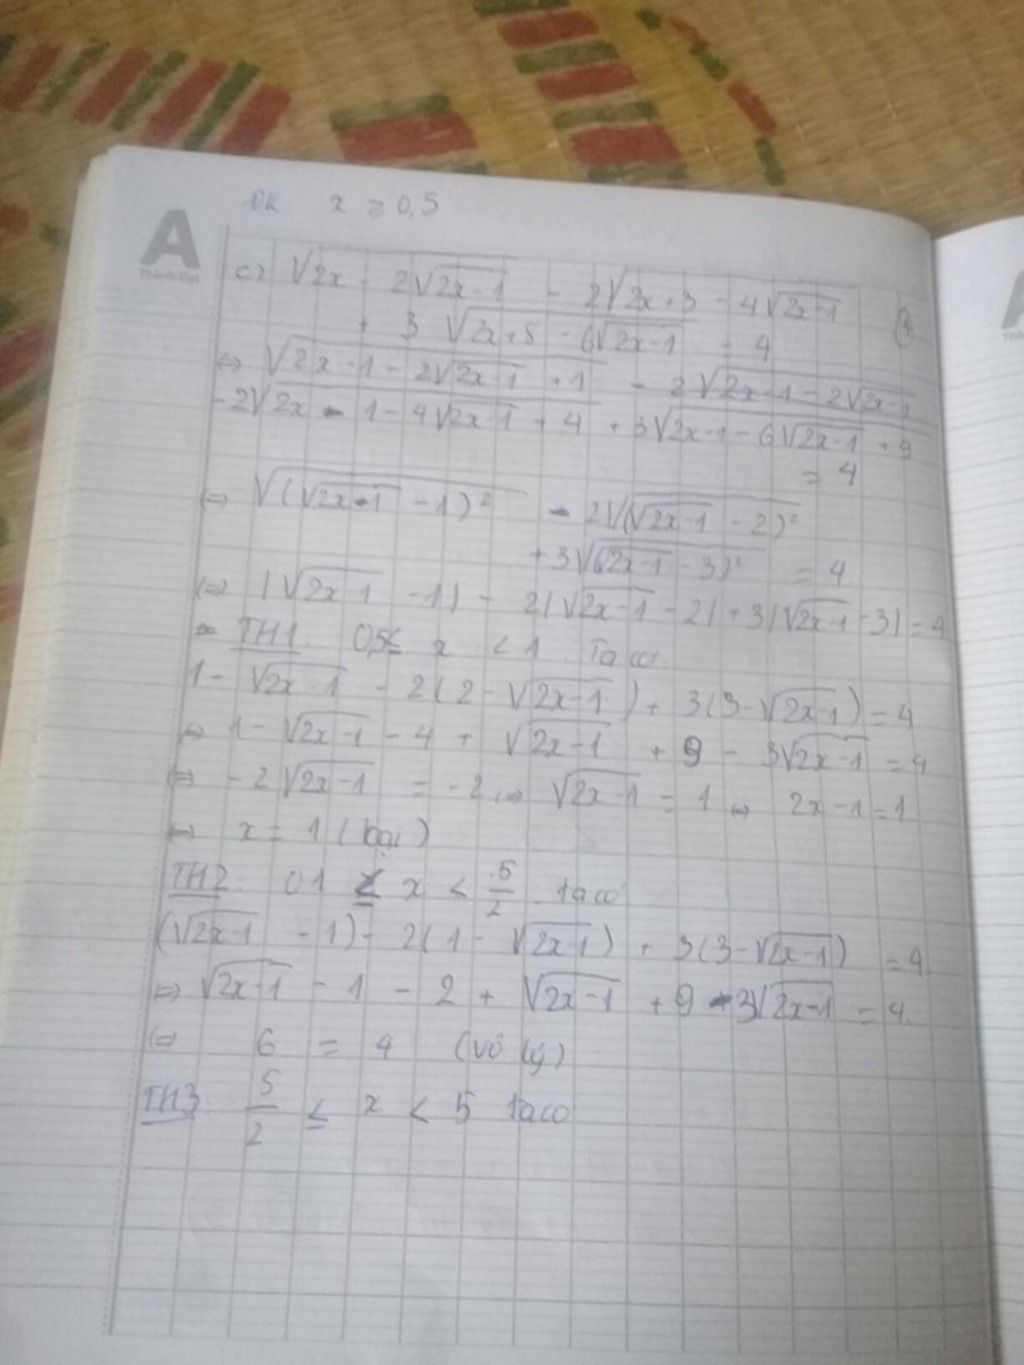 ĐK x ≥ 0,5
A
Thành Đạt
c) √(2x - 2√(2x-1)) - 2√(2x+3 - 4√(2x-1))
+ 3√(2x+8 - 6√(2x-1)) = 4
⇔ √(2x-1-2√(2x-1)+1) - 2√(2x-1-2√(2x-1
-2√(2x-1-4√(2x-1)+4) + 3√(2x-1-6√(2x-1)+9)
= 4
⇔ √((√(2x-1) - 1)²) - 2√((√(2x-1) - 2)²)
+ 3√((2x-1 - 3)²) = 4
⇔ |√(2x-1) - 1| - 2|√(2x-1) - 2| + 3|√(2x-1) - 3| = 4
TH1: 0,5 ≤ x < 1 Ta có
1 - √(2x-1) - 2(2 - √(2x-1)) + 3(3 - √(2x-1)) = 4
⇔ 1 - √(2x-1) - 4 + √(2x-1) + 9 - 3√(2x-1) = 4
⇔ -2√(2x-1) = -2 ⇔ √(2x-1) = 1 ⇔ 2x-1 = 1
⇔ x = 1 (loại)
TH2: 01 ≤ x < 5/2 ta có
(√(2x-1) - 1) - 2(1 - √(2x-1)) + 3(3 - √(2x-1)) = 4
⇔ √(2x-1) - 1 - 2 + √(2x-1) + 9 - 3√(2x-1) = 4
⇔ 6 = 4 (vô lý)
TH3 5/2 ≤ x < 5 ta có